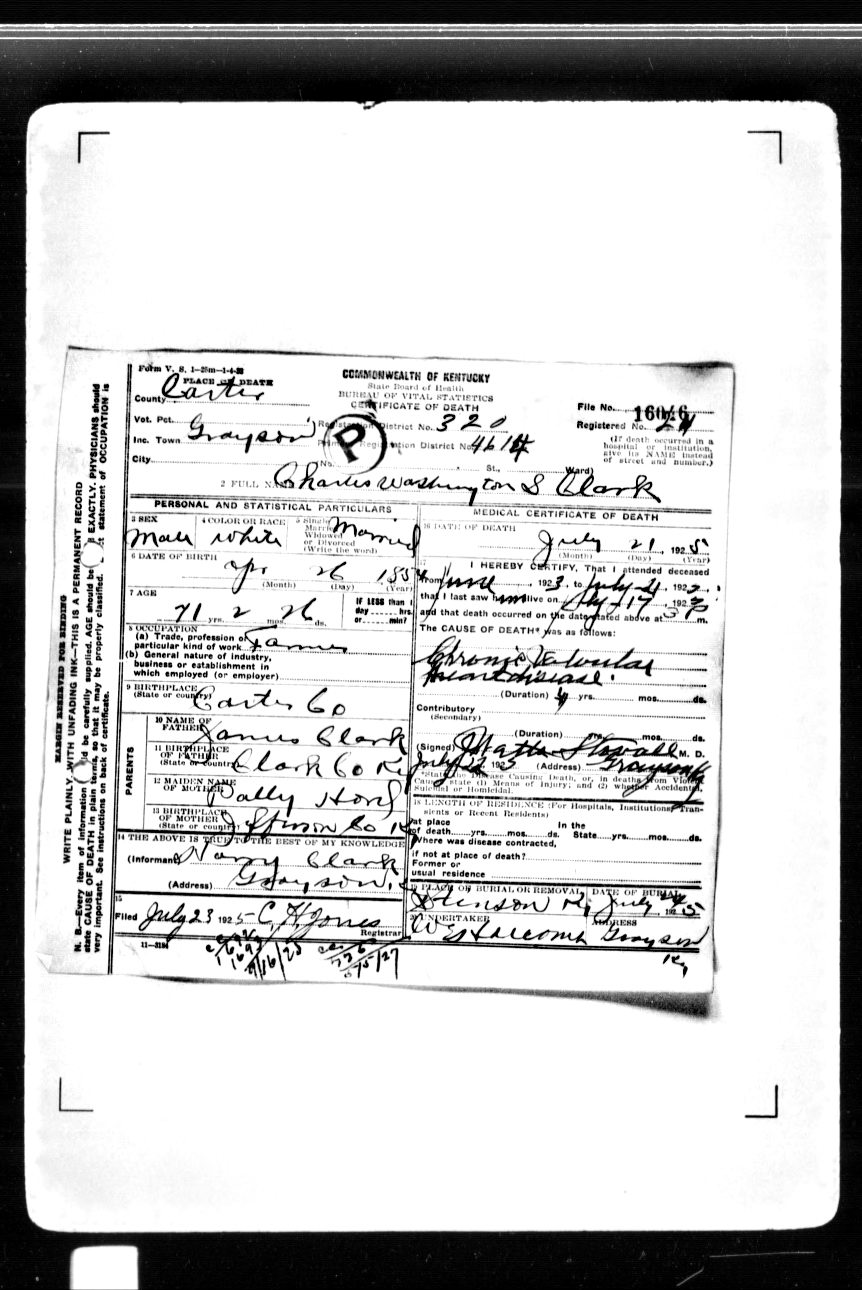 Form V. S. 1-25m-1-4-23
PLACE OF DEATH
County Carter
Vot. Pct.
Inc. Town Grayson
City
COMMONWEALTH OF KENTUCKY
State Board of Health
BUREAU OF VITAL STATISTICS
CERTIFICATE OF DEATH
Registration District No. 320
Primary Registration District No. 4614
P
No. St., Ward)
File No. 16046
Registered No. 24
(If death occurred in a
hospital or institution,
give its NAME instead
of street and number.)
2 FULL NAME Charles Washington S Clark
PERSONAL AND STATISTICAL PARTICULARS
3 SEX Male
4 COLOR OR RACE White
5 Single
Married
Widowed
or Divorced
(Write the word) Married
6 DATE OF BIRTH
Apr 26 1854
(Month) (Day) (Year)
7 AGE
71 yrs. 2 mos. 26 ds.
IF LESS than 1
day hrs.
or min?
8 OCCUPATION
(a) Trade, profession or
particular kind of work Farmer
(b) General nature of industry,
business or establishment in
which employed (or employer)
9 BIRTHPLACE
(State or country) Carter Co
PARENTS
10 NAME OF
FATHER James Clark
11 BIRTHPLACE
OF FATHER
(State or country) Clark Co Ky
12 MAIDEN NAME
OF MOTHER Polly
13 BIRTHPLACE
OF MOTHER
(State or country) Jefferson Co Ky
14 THE ABOVE IS TRUE TO THE BEST OF MY KNOWLEDGE
(Informant) Clark
(Address) Grayson,
15
Filed July 23 1925 C. H. Jones
Registrar
11-3184
MEDICAL CERTIFICATE OF DEATH
16 DATE OF DEATH
July 21, 1925
(Month) (Day) (Year)
17
I HEREBY CERTIFY, That I attended deceased
from June, 1923, to July 21, 192
that I last saw him alive on July 17, 192
and that death occurred on the date stated above at 3 P m.
The CAUSE OF DEATH* was as follows:
Chronic Valvular
heart disease.
(Duration) 4 yrs. mos. ds.
Contributory
(Secondary)
(Duration) yrs. mos. ds.
(Signed) J Watts Stovall M. D.
July 22 1925 (Address) Grayson Ky
*State the Disease Causing Death, or, in deaths from Violent
Causes, state (1) Means of Injury; and (2) whether Accidental,
Suicidal or Homicidal.
18 LENGTH OF RESIDENCE (For Hospitals, Institutions, Tran-
sients or Recent Residents)
At place In the
of death yrs. mos. ds. State yrs. mos. ds.
Where was disease contracted,
if not at place of death?
Former or
usual residence
19 PLACE OF BURIAL OR REMOVAL DATE OF BURIAL
Stinson Ky July 1925
20 UNDERTAKER ADDRESS
Grayson
Ky
9/16/25
5/5/27
MARGIN RESERVED FOR BINDING
WRITE PLAINLY, WITH UNFADING INK—THIS IS A PERMANENT RECORD
N. B.—Every item of information should be carefully supplied. AGE should be EXACTLY. PHYSICIANS should
state CAUSE OF DEATH in plain terms, so that it may be properly classified. statement of OCCUPATION is
very important. See instructions on back of certificate.